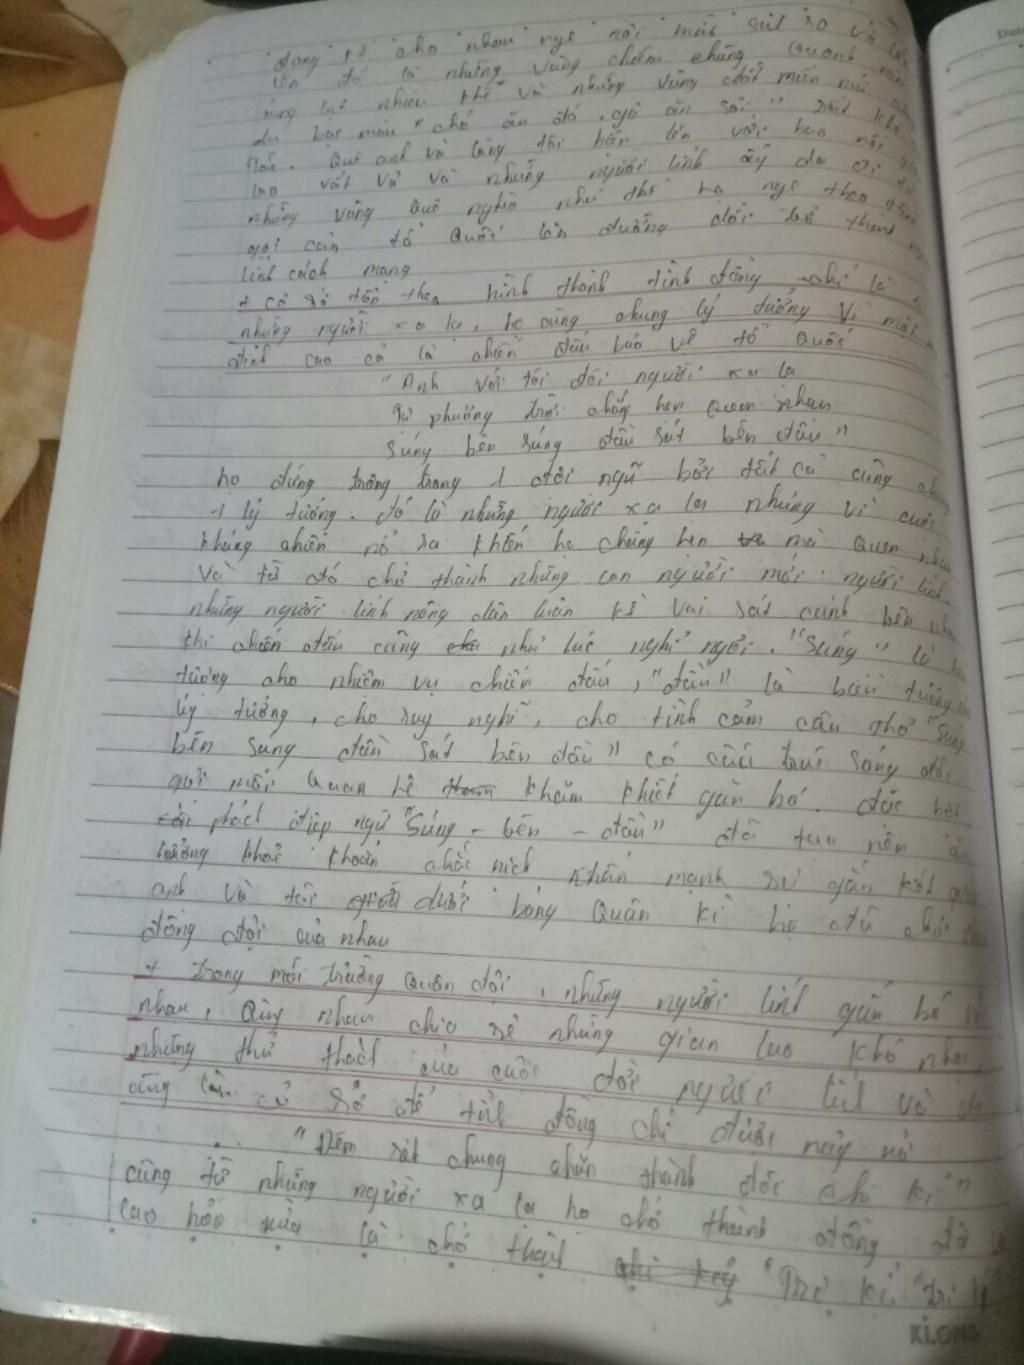 đang tả cho nhau nge nơi
lên đó là những vùng chiêm chũng quanh năm
úng lụt nhiều thế và những vùng đất miền núi
du bạc màu "chó ăn đá, gà ăn sỏi" rất khó
Quê anh và làng tôi hiện lên với bao nỗi
lao vất vả và những người lính ấy đã
những vùng quê nghèo như thế ra nge theo tiếng
gọi của tổ Quốc lên đường
lính cách mạng
+ cơ sở tiếp theo hình thành tình đồng chí là
những người xa lạ, họ cùng chung lý tưởng vì mục
đích cao cả là chiến đấu bảo vệ tổ Quốc
"Anh với tôi đôi người xa lạ
Tự phương trời chẳng hẹn quen nhau
Súng bên súng đầu sát bên đầu"
họ đứng trong trong 1 đội ngũ bởi tất cả cùng chung
1 lý tưởng. đó là những người xa lạ nhưng vì cuộc
kháng chiến nổ ra khiến họ chẳng hẹn mà quen nhau
Và từ đó chở thành những con người mới: người lính.
những người lính nông dân luôn kề vai sát cánh bên nhau
khi chiến đấu cũng như lúc nghỉ ngơi. "Súng" là biểu
tượng cho nhiệm vụ chiến đấu, "đầu" là biểu tượng cho
lý tưởng, cho suy nghĩ, cho tình cảm câu thơ "Súng
bên súng đầu sát bên đầu" có cấu trúc sóng đôi
gợi mối quan hệ khăm khiết gắn bó. đặc biệt
phách điệp ngữ "Súng - bên - đầu" đã tạo nên âm
hưởng khoẻ khoắn chắc nịch nhấn mạnh sự gắn kết giữa
anh và tôi dưới bóng quân kì họ đã chở thành
đồng đội của nhau
+ trong môi trường quân đội, những người lính gắn bó với
nhau, cùng nhau chia sẻ những gian lao khó nhọc,
những thử thách của cuộc đời người lính và đó
cũng là cơ sở để tình đồng chí được nảy nở
"Đêm rét chung chăn thành đôi chi kỉ"
cũng từ những người xa lạ họ chở thành đồng đội và
cao hơn nữa là chở thành "Tri kỉ" "tri
KLONG